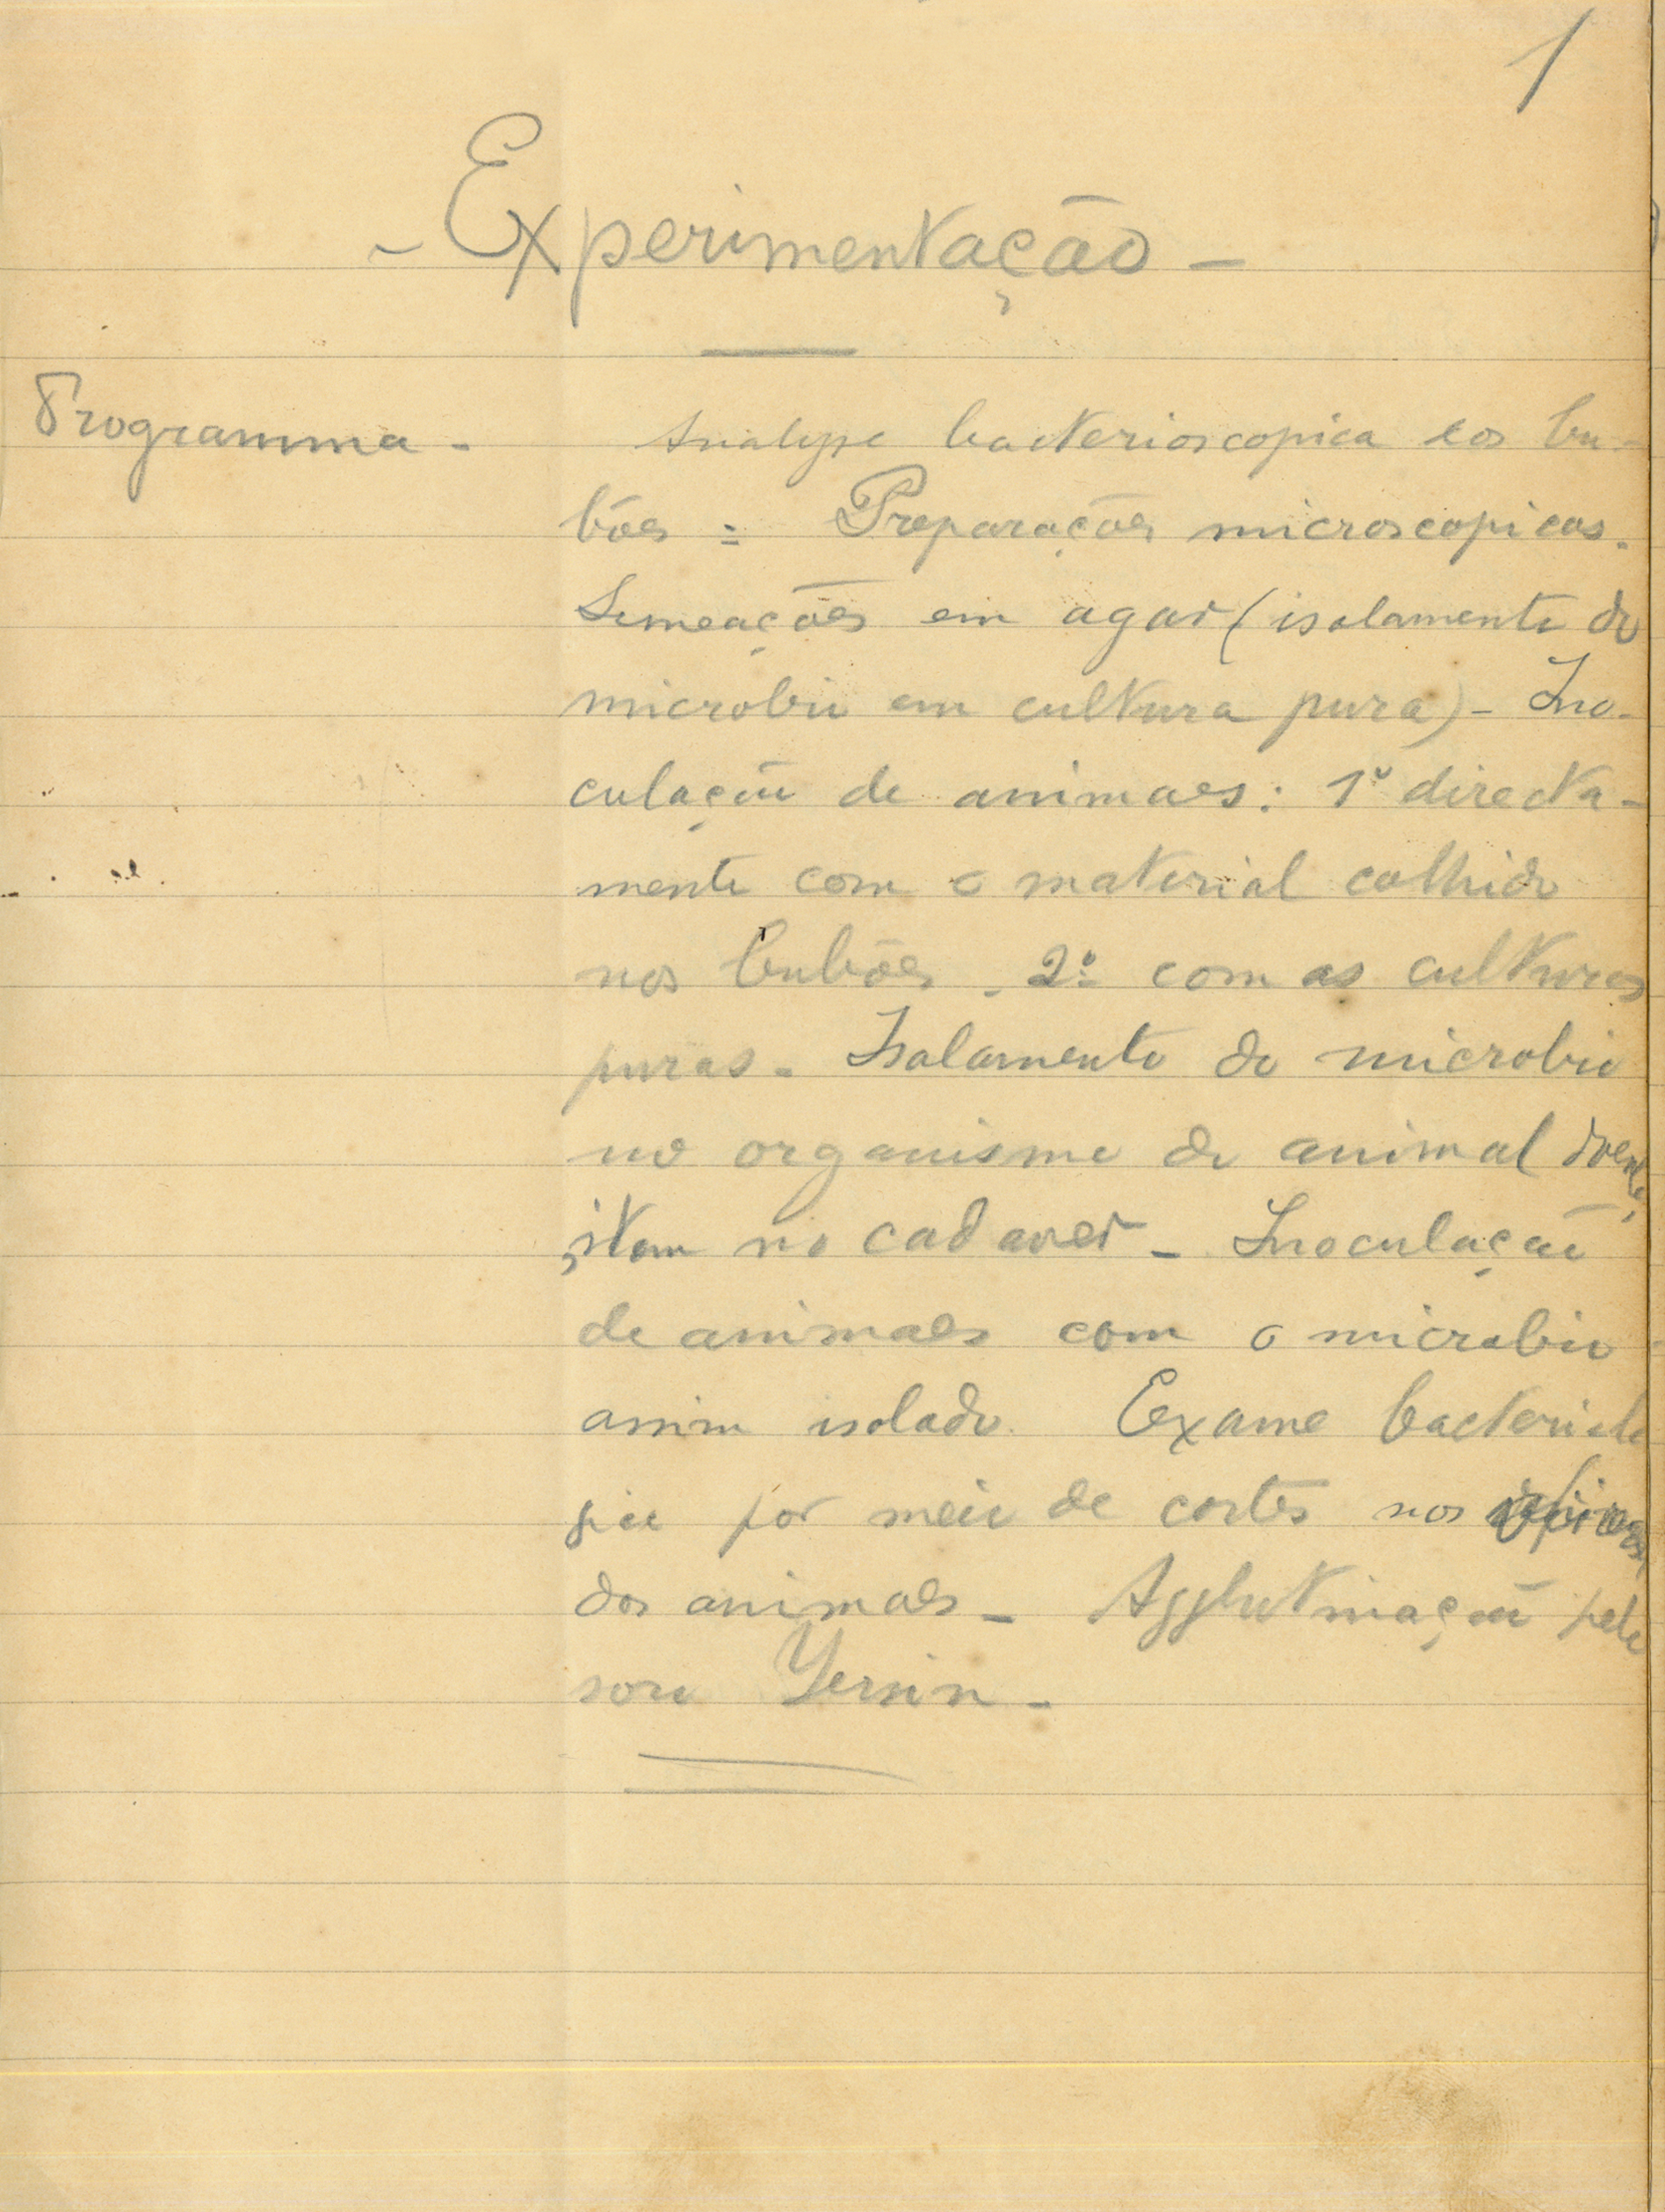 1
- Experimentação -
Programma -
Analyse bacterioscopica dos bu-
bões = Preparações microscopicas.
Semeações em agar (isolamento do
microbio em cultura pura) - Ino-
culação de animaes: 1º directa-
mente com o material colhido
nos bubões - 2º com as culturas
puras - Isolamento do microbio
no organismo do animal doente,
item no cadaver - Inoculação
de animaes com o microbio
assim isolado. Exame bacteriolo
gico por meio de cortes nos
dos animaes - Agglutinação pelo
soro Yersin -